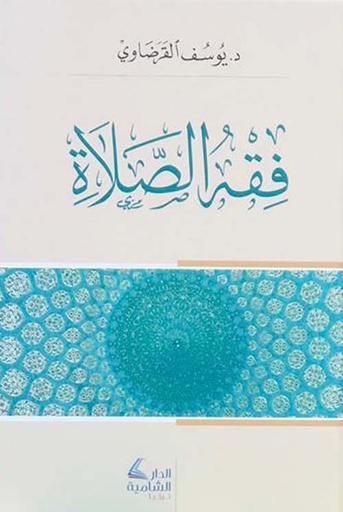 د. يُوسُف القَرَضَاوِيْ
فِقْهُ الصَّلَاَةِ
الدار
الشامية
تركيا